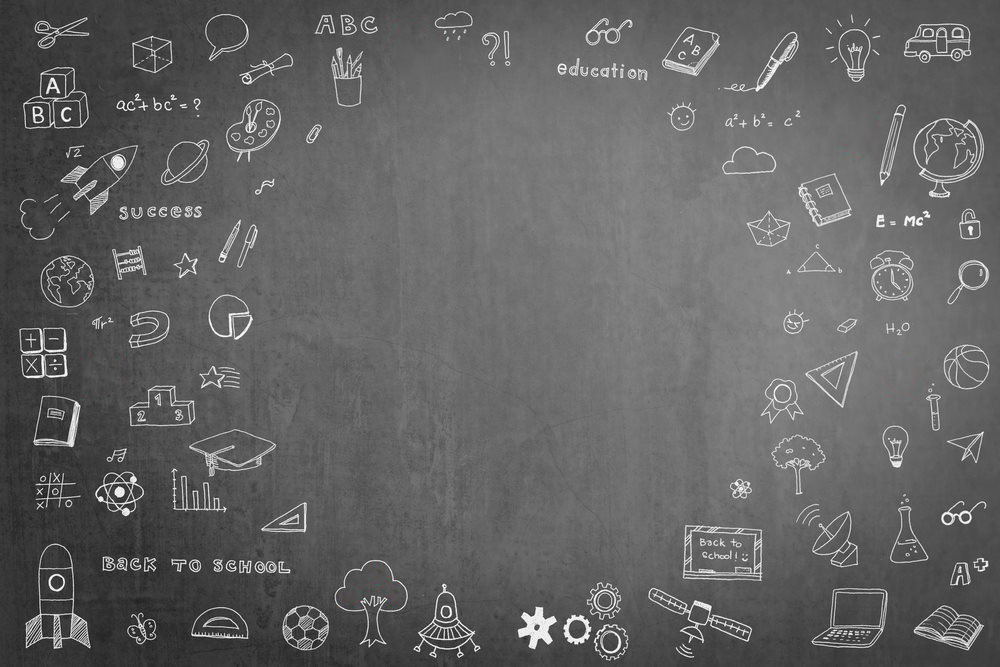 ABC
?!
education
A
B C
A
B C
ac²+bc²=?
a²+b²= c²
√2
success
E = Mc²
C
A b
πr²
H₂O
+ −
X ÷
1
2 3
O X
X O
X O
BACK TO SCHOOL
Back to
school!
A+